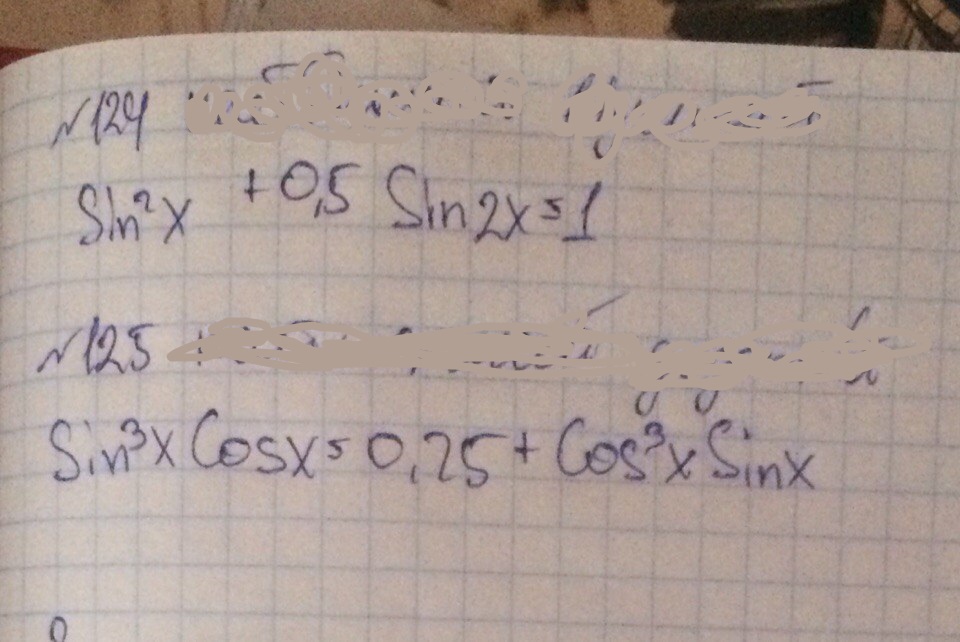 №124
Sin²x +0,5 Sin2x=1
№125
Sin³x Cosx=0,25+Cos³x Sinx